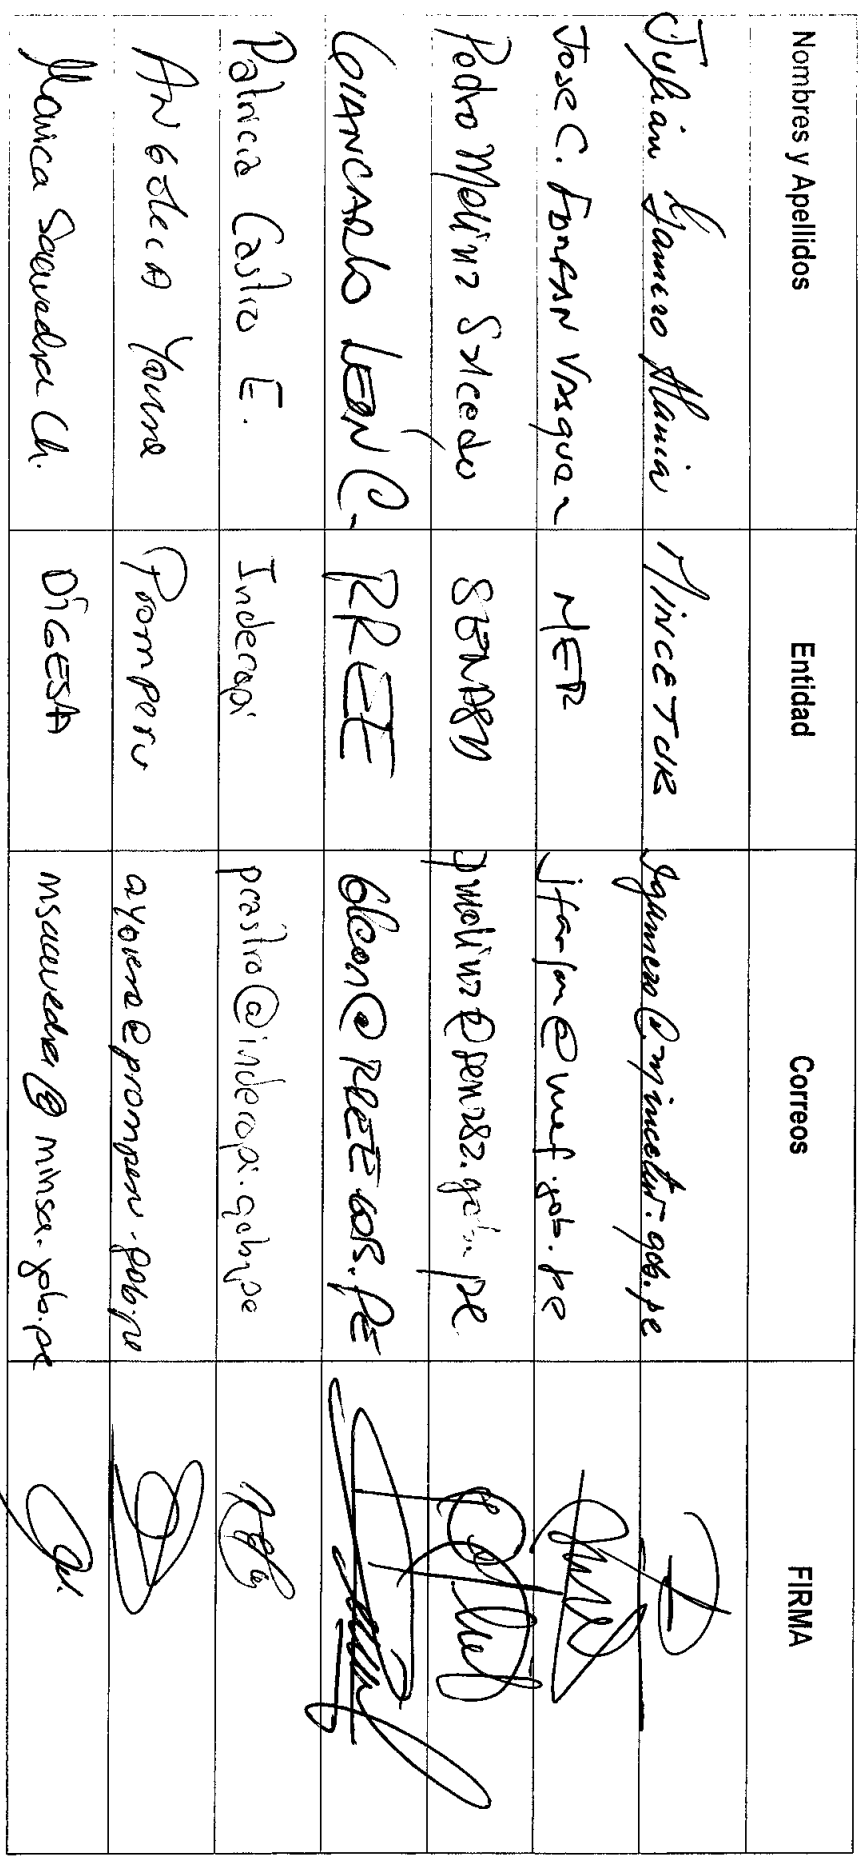 Nombres y Apellidos Entidad Correos FIRMA
Julián Gamero Alania MINCETUR jgamero@mincetur.gob.pe
Jose C. FARFAN Vasquez MEF jfarfan@mef.gob.pe
Pedro Molina Salcedo SENASA pmolina@senasa.gob.pe
GIANCARLO LEÓN C. RREE GLeon@RREE.GOB.PE
Patricia Castro E. Indecopi pcastro@indecopi.gob.pe
ANGELICA Promperu
Monica Saavedra Ch. DIGESA msaavedra@minsa.gob.pe